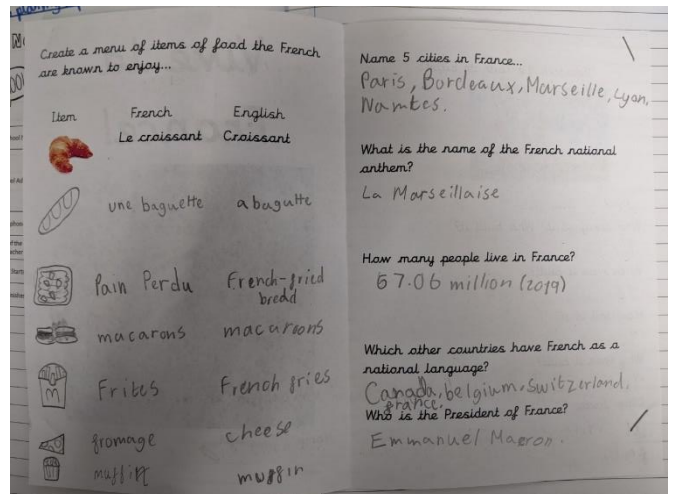 Create a menu of items of food the French
are known to enjoy...
Item French English
Le croissant Croissant
une baguette a bagutte
Pain Perdu French-fried
bredd
macarons macaroons
Frites French fries
M
fromage cheese
muffin
Name 5 cities in France...
Paris, Bordeaux, Marseille, Lyon,
Nantes.
What is the name of the French national
anthem?
La Marseillaise
How many people live in France?
67.06 million (2019)
Which other countries have French as a
national language?
Canada, belgium, Switzerland,
france.
Who is the President of France?
Emmanuel Macron.